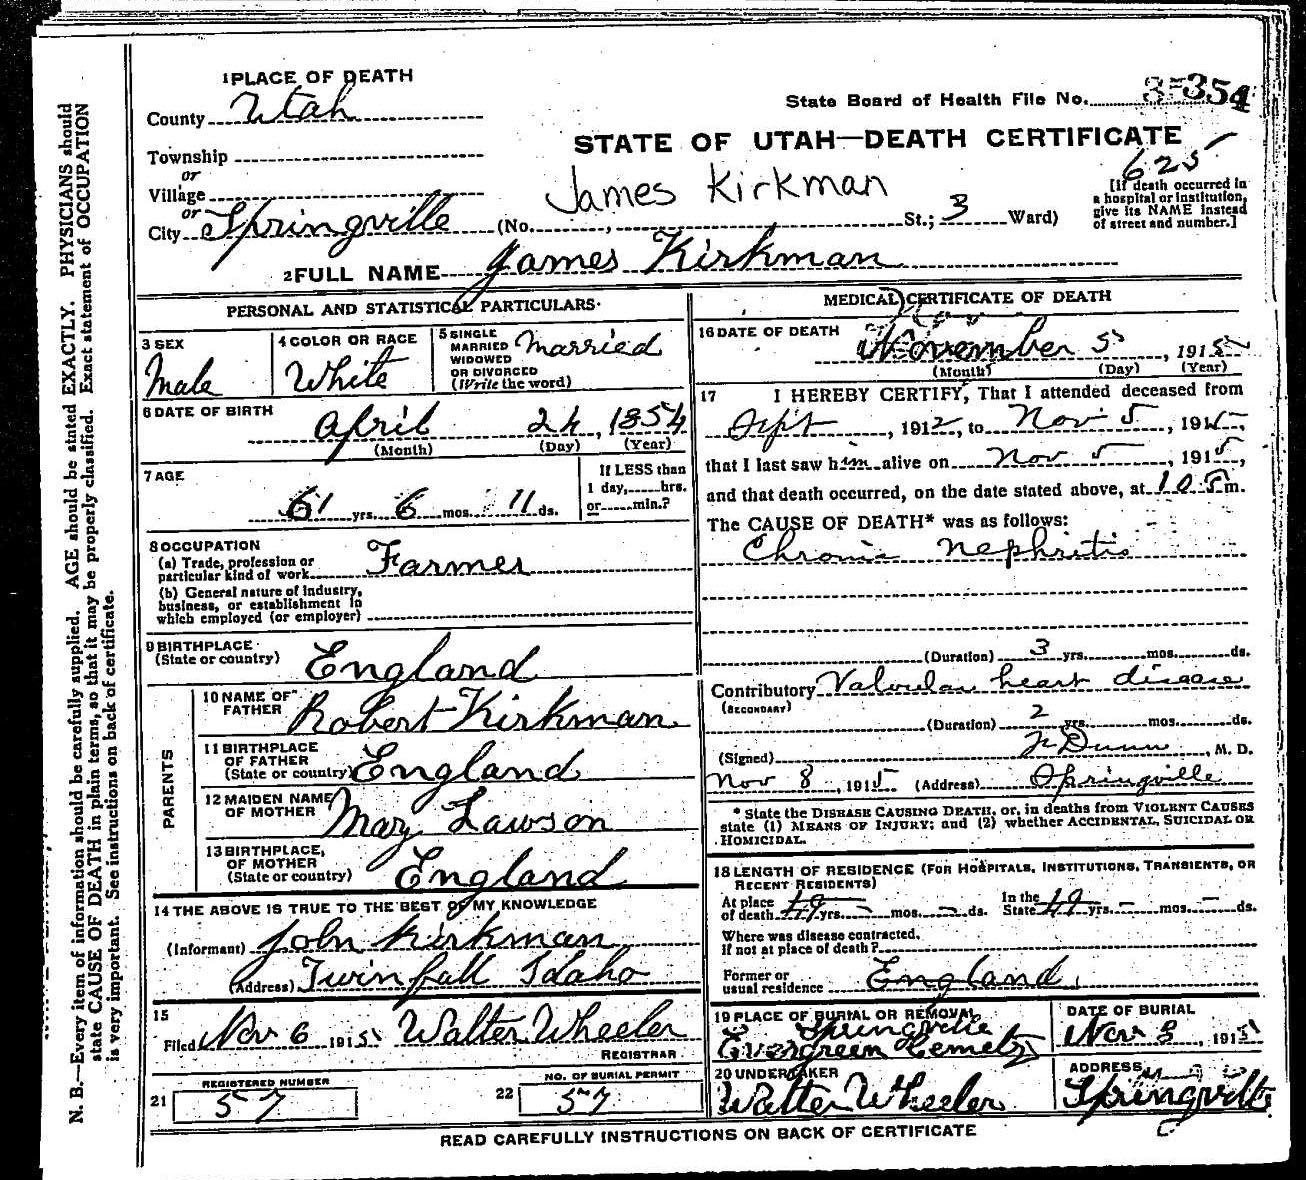 N. B.—Every item of information should be carefully supplied. AGE should be stated EXACTLY. PHYSICIANS should
state CAUSE OF DEATH in plain terms, so that it may be properly classified. Exact statement of OCCUPATION
is very important. See instructions on back of certificate.
1 PLACE OF DEATH
County Utah
Township
or
Village
or
City Springville
State Board of Health File No. 354
STATE OF UTAH—DEATH CERTIFICATE
625
James Kirkman
(No. , St.; 3 Ward)
[If death occurred in
a hospital or institution,
give its NAME instead
of street and number.]
2 FULL NAME James Kirkman
PERSONAL AND STATISTICAL PARTICULARS
3 SEX
Male
4 COLOR OR RACE
White
5 SINGLE
MARRIED
WIDOWED
OR DIVORCED
(Write the word)
Married
6 DATE OF BIRTH
April 24, 1854
(Month) (Day) (Year)
7 AGE
61 yrs. 6 mos. 11 ds.
If LESS than
1 day, hrs.
or min.?
8 OCCUPATION
(a) Trade, profession or
particular kind of work Farmer
(b) General nature of industry,
business, or establishment in
which employed (or employer)
9 BIRTHPLACE
(State or country) England
PARENTS
10 NAME OF
FATHER Robert Kirkman
11 BIRTHPLACE
OF FATHER
(State or country) England
12 MAIDEN NAME
OF MOTHER Mary Lawson
13 BIRTHPLACE,
OF MOTHER
(State or country) England
14 THE ABOVE IS TRUE TO THE BEST OF MY KNOWLEDGE
(Informant) John Kirkman
(Address) Twinfall Idaho
15
Filed Nov 6 1915 Walter Wheeler
REGISTRAR
21 REGISTERED NUMBER
57
22 NO. OF BURIAL PERMIT
57
MEDICAL CERTIFICATE OF DEATH
16 DATE OF DEATH
November 5, 1915
(Month) (Day) (Year)
17 I HEREBY CERTIFY, That I attended deceased from
Sept, 1912, to Nov 5, 1915,
that I last saw him alive on Nov 5, 1915,
and that death occurred, on the date stated above, at 10 m.
The CAUSE OF DEATH* was as follows:
Chronic Nephritis
(Duration) 3 yrs. mos. ds.
Contributory Valvular heart disease
(SECONDARY)
(Duration) 2 yrs. mos. ds.
(Signed) Dunn, M. D.
Nov 8, 1915 (Address) Springville
* State the DISEASE CAUSING DEATH, or, in deaths from VIOLENT CAUSES
state (1) MEANS OF INJURY; and (2) whether ACCIDENTAL, SUICIDAL OR
HOMICIDAL.
18 LENGTH OF RESIDENCE (FOR HOSPITALS, INSTITUTIONS, TRANSIENTS, OR
RECENT RESIDENTS)
At place
of death 49 yrs. - mos. - ds.
In the
State 49 yrs. - mos. - ds.
Where was disease contracted,
if not at place of death?
Former or
usual residence England
19 PLACE OF BURIAL OR REMOVAL
Springville
Evergreen Cemetry
DATE OF BURIAL
Nov 8, 1915
20 UNDERTAKER
Walter Wheeler
ADDRESS
Springville
READ CAREFULLY INSTRUCTIONS ON BACK OF CERTIFICATE